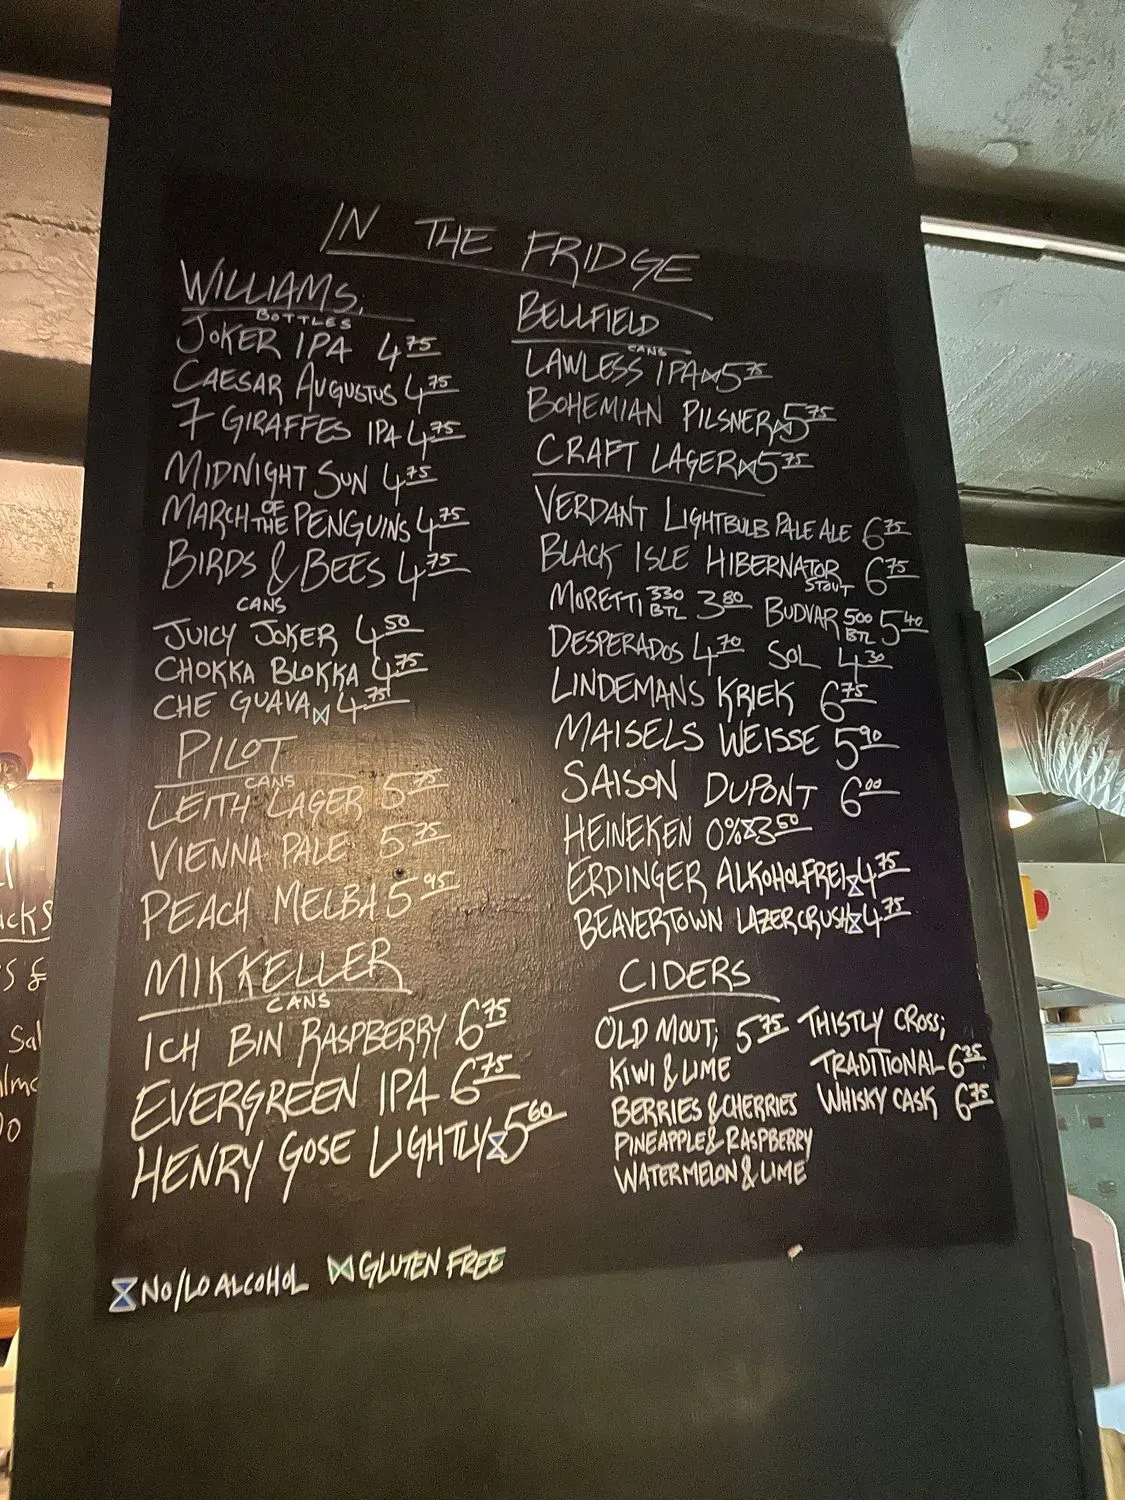 IN THE FRIDGE
WILLIAMS.
BOTTLES
JOKER IPA 4 75
CAESAR AUGUSTUS 4 75
7 GIRAFFES IPA 4 75
MIDNIGHT SUN 4 75
MARCH OF THE PENGUINS 4 75
BIRDS & BEES 4 75
CANS
JUICY JOKER 4 50
CHOKKA BLOKKA 4 75
CHE GUAVA 4 75
PILOT
CANS
LEITH LAGER 5 75
VIENNA PALE 5 75
PEACH MELBA 5 95
MIKKELLER
CANS
ICH BIN RASPBERRY 6 75
EVERGREEN IPA 6 75
HENRY GOSE LIGHTLY 5 60
BELLFIELD
CANS
LAWLESS IPA 5 75
BOHEMIAN PILSNER 5 75
CRAFT LAGER 5 75
VERDANT LIGHTBULB PALE ALE 6 75
BLACK ISLE HIBERNATOR STOUT 6 75
MORETTI 330 BTL 3 80 BUDVAR 500 BTL 5 40
DESPERADOS 4 70 SOL 4 30
LINDEMANS KRIEK 6 75
MAISELS WEISSE 5 90
SAISON DUPONT 6 00
HEINEKEN 0% 3 50
ERDINGER ALKOHOLFREI 4 75
BEAVERTOWN LAZER CRUSH 4 75
CIDERS
OLD MOUT; 5 75
KIWI & LIME
BERRIES & CHERRIES
PINEAPPLE & RASPBERRY
WATERMELON & LIME
THISTLY CROSS;
TRADITIONAL 6 25
WHISKY CASK 6 75
NO/LO ALCOHOL GLUTEN FREE